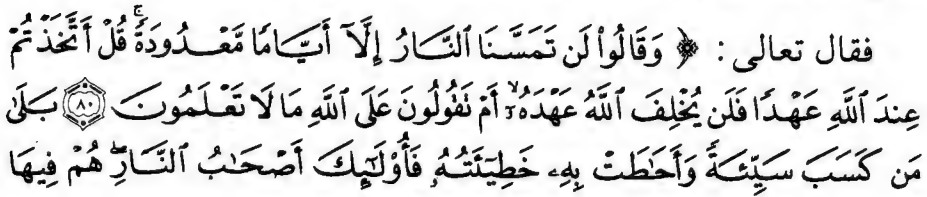 فقال تعالى : ﴿ وَقَالُوا۟ لَن تَمَسَّنَا ٱلنَّارُ إِلَّآ أَيَّامًا مَّعْدُودَةً ۚ قُلْ أَتَّخَذْتُمْ
عِندَ ٱللَّهِ عَهْدًا فَلَن يُخْلِفَ ٱللَّهُ عَهْدَهُۥٓ ۖ أَمْ تَقُولُونَ عَلَى ٱللَّهِ مَا لَا تَعْلَمُونَ ۝٨٠ بَلَىٰ
مَن كَسَبَ سَيِّئَةً وَأَحَٰطَتْ بِهِۦ خَطِيٓـَٔتُهُۥ فَأُو۟لَٰٓئِكَ أَصْحَٰبُ ٱلنَّارِ ۖ هُمْ فِيهَا